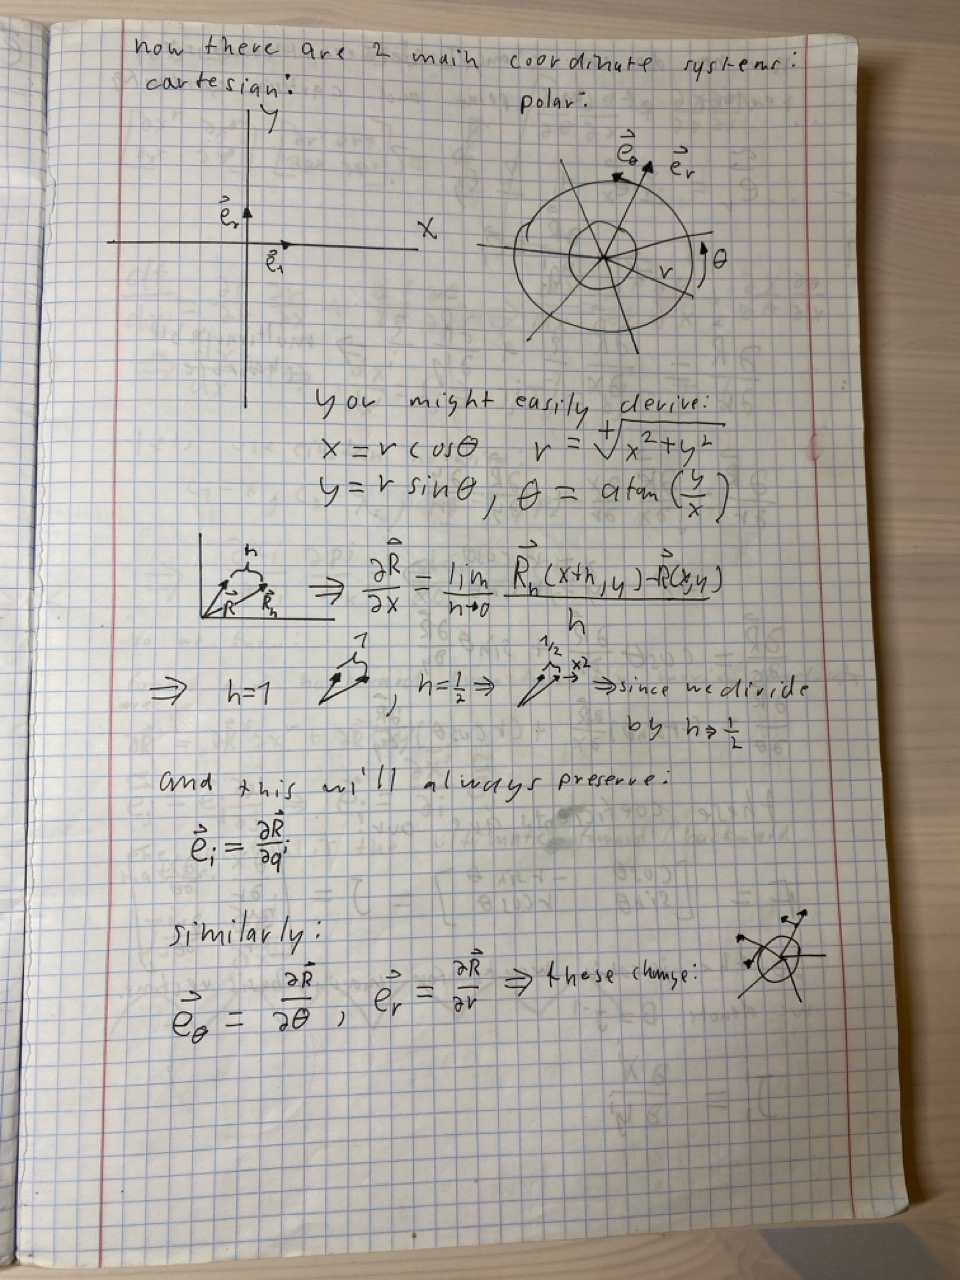 now there are 2 main coordinate systems:
cartesian:
polar:
y
x
e⃗₂
e⃗₁
e⃗θ e⃗r
r θ
you might easily derive:
x = r cosθ r = ⁺√(x² + y²)
y = r sinθ, θ = atan(y/x)
h
R⃗ R⃗ₕ
⇒ ∂R⃗/∂x = lim h→0 (R⃗ₕ(x+h, y) - R⃗(x,y))/h
⇒ h=1 1 , h=1/2 ⇒ 1/2 x2 ⇒ since we divide
by h ⇒ 1/2
and this will always preserve:
e⃗ᵢ = ∂R⃗/∂qⁱ
similarly:
e⃗θ = ∂R⃗/∂θ , e⃗r = ∂R⃗/∂r ⇒ these change: